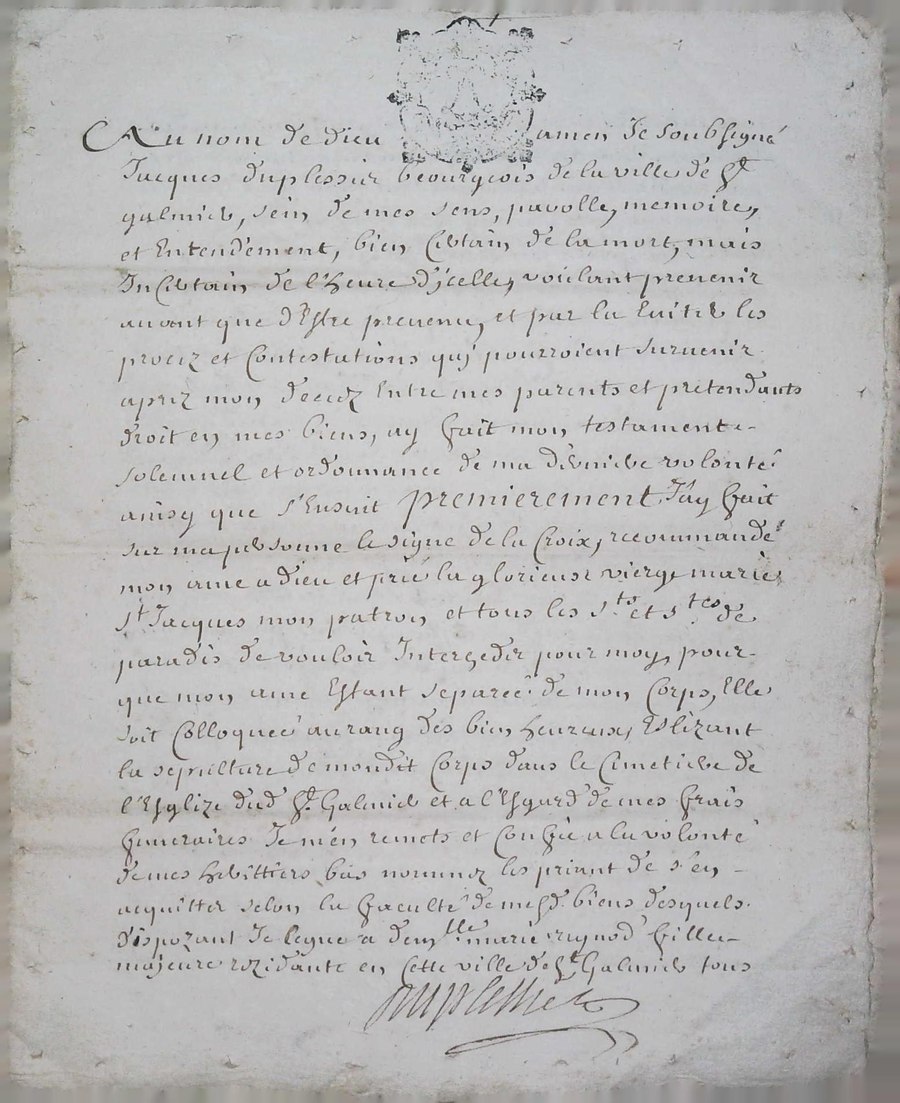 Au nom de Dieu amen Je soubsigné
Jacques duplessier beourgeois de la ville de St
galmier, sein de mes sens, parolle, memoire,
et Entendement, bien Certain de la mort, mais
Incertain de l'heure d'jcelle, voulant prevenir
avant que d'Estre prevenu, et par la Eviter les
procez et Contestations quj pourroient survenir
aprez mon decez Entre mes parents et pretendants
droit en mes biens, ay fait mon testament
solemnel et ordonnance de ma derniere volonté
ainsy que s'Ensuit premierement J'ay fait
sur ma personne le signe de la Croix, recommandé
mon ame a Dieu et prié la glorieuse vierge marie,
St Jacques mon patron et tous les Sts et Stes de
paradis de vouloir Interçedir pour moy, pour
que mon ame Estant separeé de mon Corps, Elle
soit Colloqueé au rang des bien heureux, Eslizant
la sepulture de mondit Corps dans le Cimetiere de
l'Esglize dud St Galmier et a l'Esgard de mes frais
funeraires Je m'en remets et Confie a la volonté
de mes heritiers bas nommez les priant de s'en
acquitter selon la faculté de mesd. biens desquels
dispozant Je legue a demlle marie rignod fille
majeure rezidante en Cette ville de St Galmier tous
duplessier